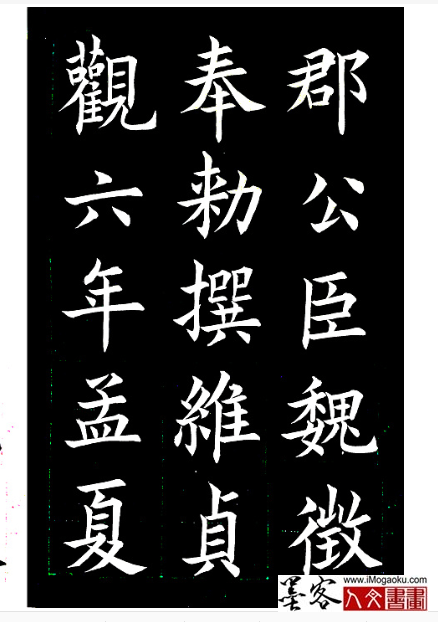 郡公臣魏徵
奉勑撰維貞
觀六年孟夏
墨客
www.iMogaoku.com
人文書畫